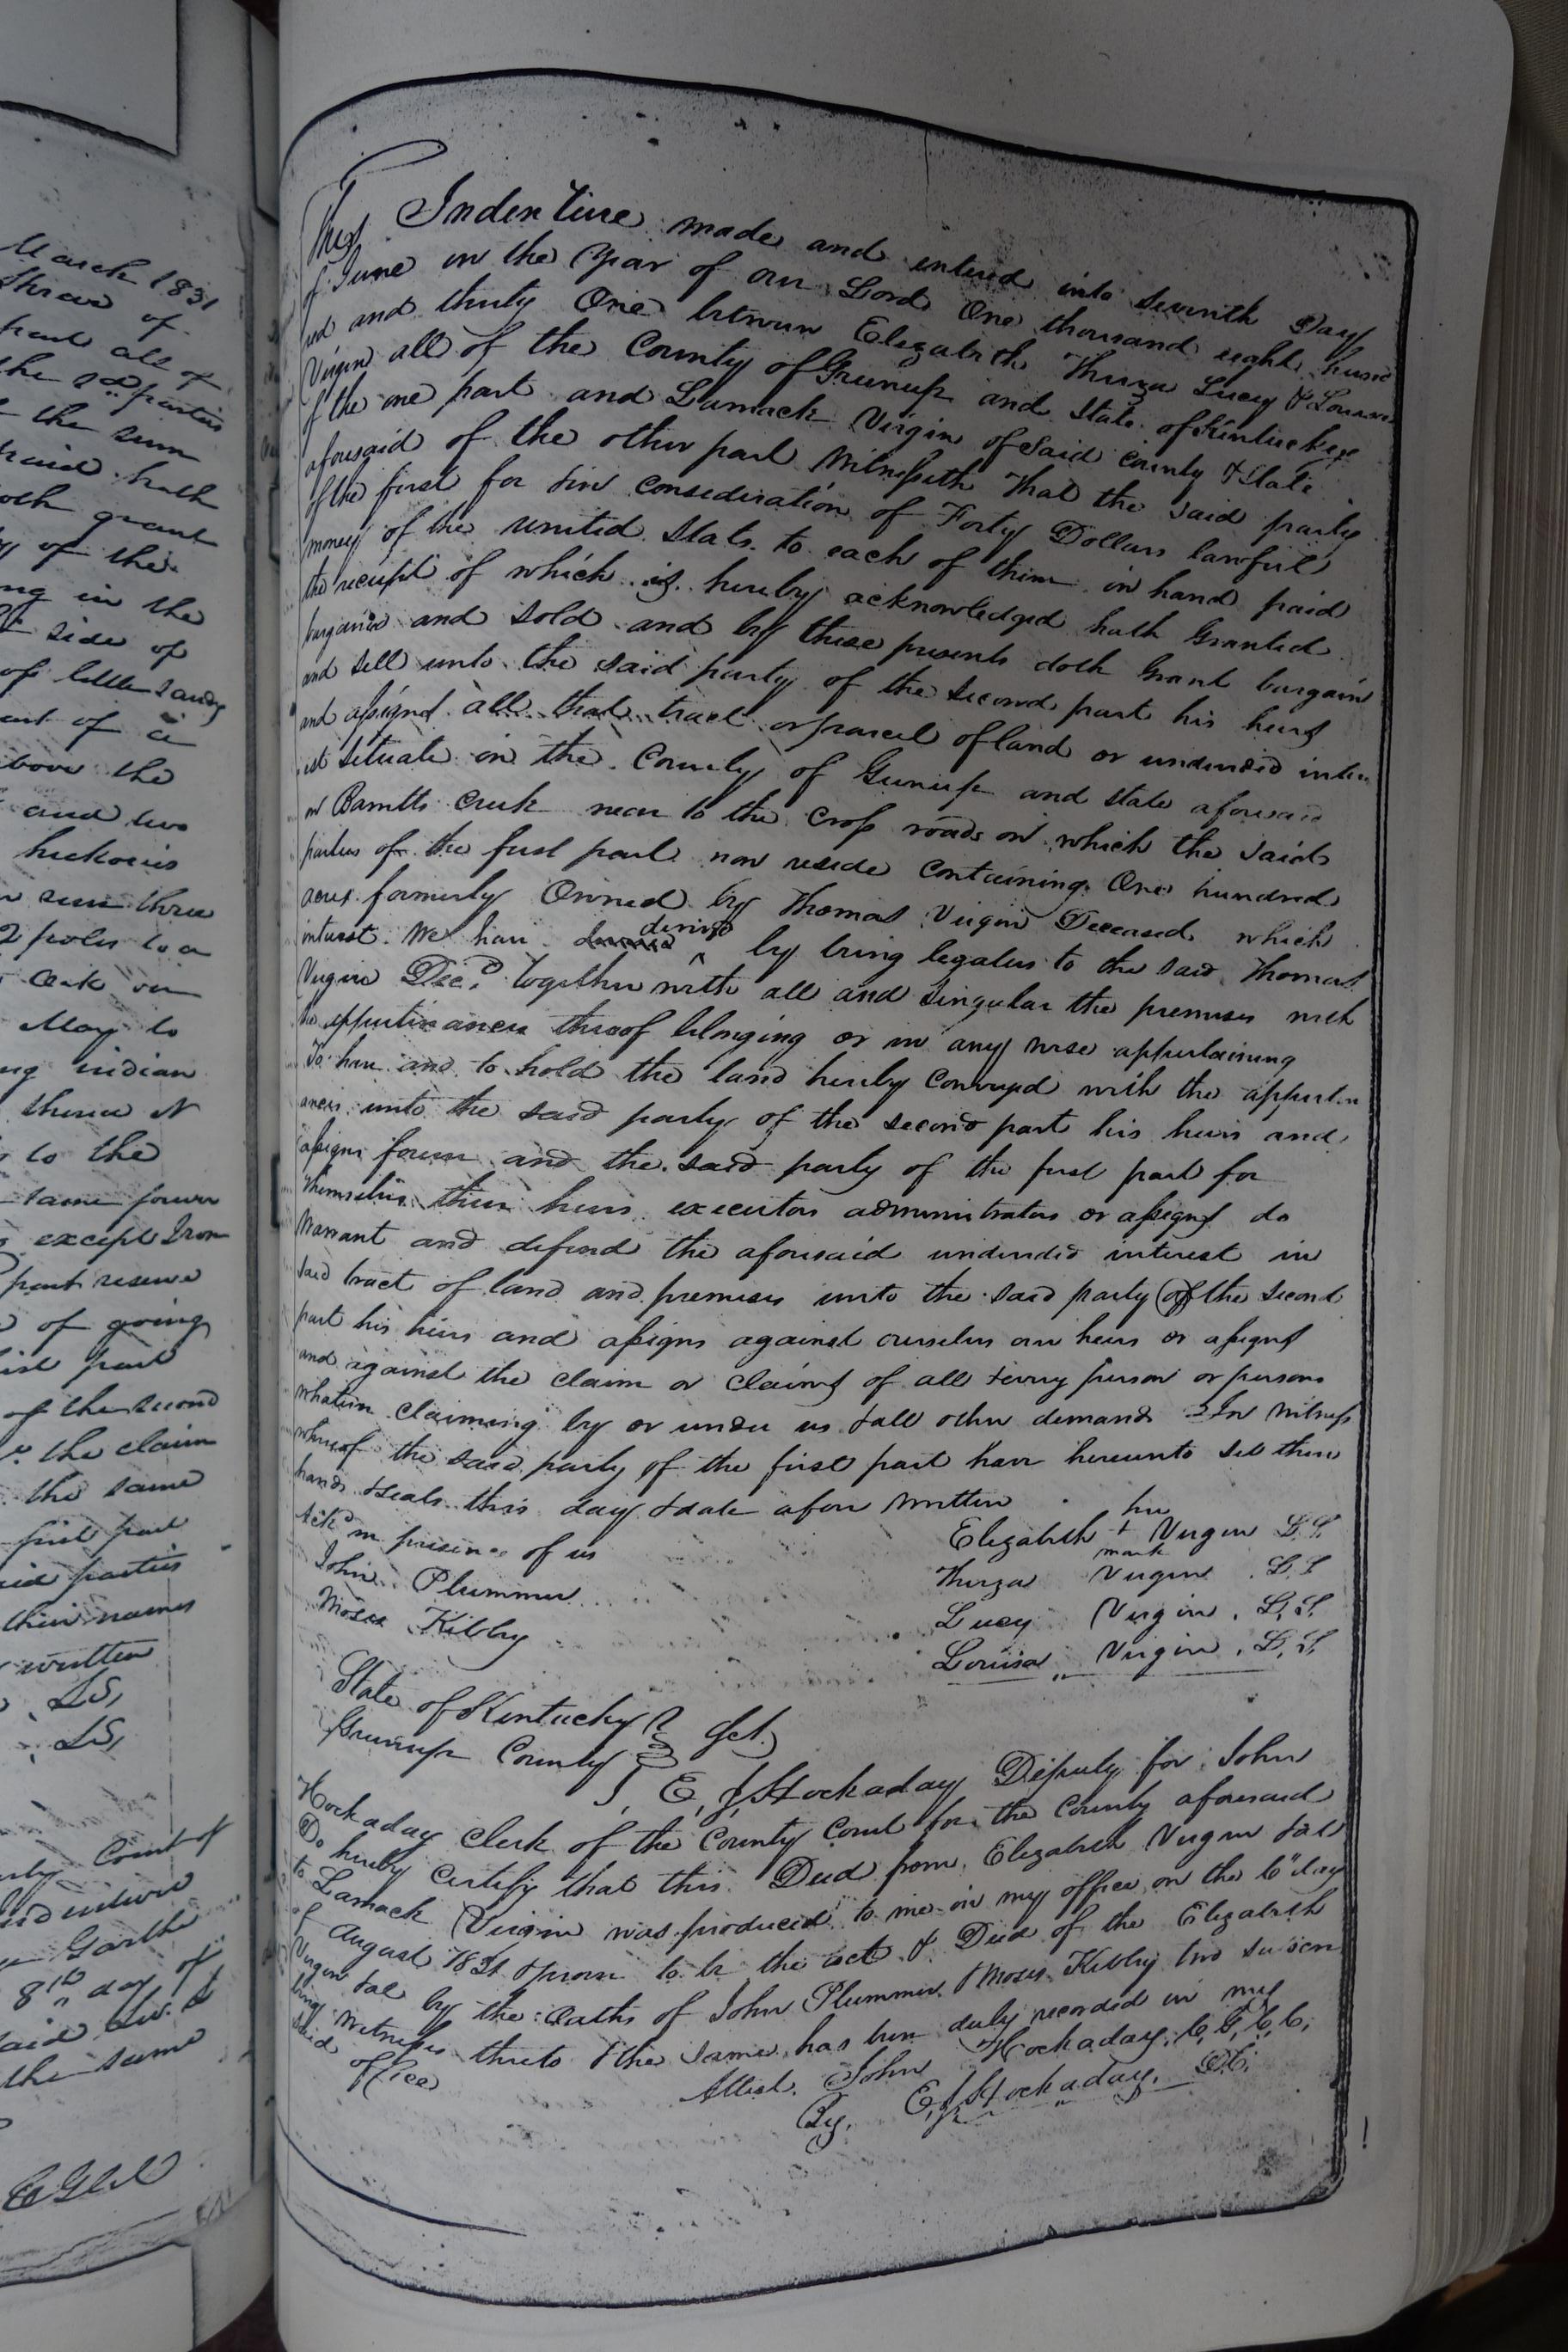 March 1831
of
part all of
the 2d parties
the sum
said hath
doth grant
of the
ng in the
side of
of little Sandy
of a
above the
and two
hickories
run three
poles to a
oak
May to
indian
thence N
to the
same forever
except Iron
part reserve
of going
part
of the second
the claim
the same
first part
parties
their names
written
LS,
LS,
Court of
8th day of
the same
This Indenture made and entered into Seventh Day
of June in the Year of our Lord One thousand eight hund
red and thirty One between Elizabeth Thurza Lucy & Louisa
Virgin all of the County of Greenup and State of Kentucky
of the one part and Lamack Virgin of Said County & State
aforesaid of the other part Witnesseth That the Said party
of the first for & in consideration of Forty Dollars lawful
money of the united Stats. to each of them in hand paid
the receipt of which is hereby acknowledged hath Granted
bargained and Sold and by these presents doth Grant bargain
and sell unto the said party of the Second part his heirs
and assigns all that tract or parcel of land or undivided inter
est Situate in the County of Greenup and State aforesaid
on Barretts Creek near to the Cross roads on which the Said
parties of the first part now reside Containing One hundred
acres formerly Owned by Thomas Virgin Deceased which
interest We have derived by being legatees to the said Thomas
Virgin Decd. together with all and Singular the premises with
the appurtinances thereof belonging or in any wise appurtaining
To have and to hold the land hereby Conveyed with the appurten
ances unto the said party of the second part his heirs and
assigns forever and the said party of the first part for
themselves their heirs executors administrators or assigns do
Warrant and defend the aforesaid undivided interest in
said tract of land and premises unto the said party of the second
part his heirs and assigns against ourselves our heirs or assigns
and against the claim or claims of all & every person or persons
whatever claiming by or under us & all other demands In Witness
whereof the said party of the first part have hereunto set their
hands & seals this day & date afore written
Ack'd in presence of us
her
Elizabeth + Virgin L.S.
mark
John Plummer
Thurza Virgin L.S
Moses Kibby
Lucy Virgin L.S.
Louisa Virgin L.S.
State of Kentucky
Greenup County Sct.
I, E, J, Hockaday Deputy for John
Hockaday Clerk of the County Court for the County aforesaid
Do hereby Certify that this Deed from Elizabeth Virgin &al
to Lamack Virgin was produced to me in my office on the 6" day
of August 1831 & proven to be the act & Deed of the Elizabeth
Virgin &al by the oaths of John Plummer & Moses Kibby two Subscri
bing Witnesses thereto & the same has been duly recorded in my
said office
Attest. John Hockaday, C, G, C, C,
By. E, J, Hockaday. D.C.